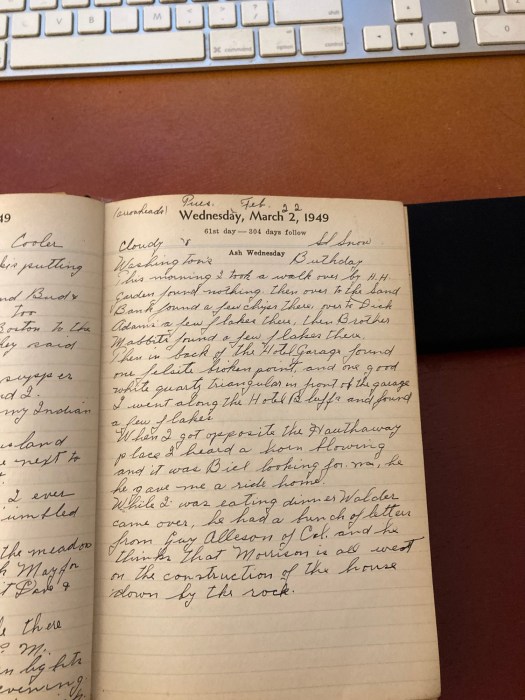 command
option
49
Cooler
putting
nd Bud &
too
Boston to the
hey said
nd I.
my Indian
island
next to
I ever
the meadow
h May for
there
? M.
evening.
(arrowheads) Tues. Feb. 22
Wednesday, March 2, 1949
61st day—304 days follow
Cloudy Snow
Ash Wednesday
Washington's Birthday
This morning I took a walk over by H.H.
Garden found nothing. then over to the Sand
Bank found a few chips there, over to Dick
Adams a few flakes there, then Brother
Mabbitts found a few flakes there.
Then in back of the Hotel Garage found
one felsite broken point, and one good
white quartz triangular in front of the garage
I went along the Hotel Bluffs and found
a few flakes.
When I got opposite the Hauthaway
place I heard a horn blowing
and it was Biel looking for me, he
he gave me a ride home.
While I was eating dinner Walder
came over, he had a bunch of letters
from Guy Alleson of Cal. and he
thinks that Morrison is all wet
on the construction of the house
down by the rock.